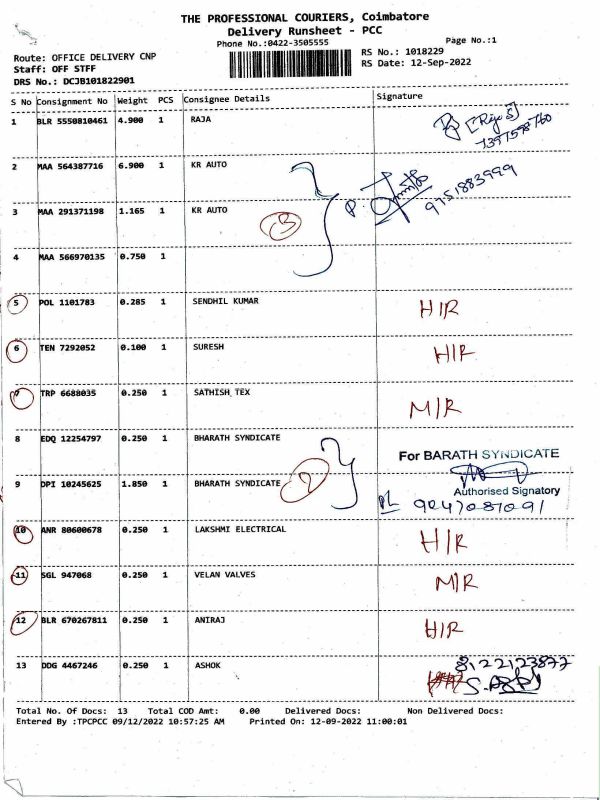 THE PROFESSIONAL COURIERS, Coimbatore
Delivery Runsheet - PCC
Phone No.:0422-3505555
Page No.:1
Route: OFFICE DELIVERY CNP
Staff: OFF STFF
DRS No.: DCJB101822901
RS No.: 1018229
RS Date: 12-Sep-2022
S No Consignment No Weight PCS Consignee Details Signature
1 BLR 5550810461 4.900 1 RAJA
2 MAA 564387716 6.900 1 KR AUTO
9751883999
3 MAA 291371198 1.165 1 KR AUTO 3
4 MAA 566970135 0.750 1
5 POL 1101783 0.285 1 SENDHIL KUMAR H/R
6 TEN 7292052 0.100 1 SURESH H/R
7 TRP 6688035 0.250 1 SATHISH TEX M/R
8 EDQ 12254797 0.250 1 BHARATH SYNDICATE
For BARATH SYNDICATE
9 DPI 10245625 1.850 1 BHARATH SYNDICATE 2
Authorised Signatory
9047087091
10 ANR 80600678 0.250 1 LAKSHMI ELECTRICAL H/R
11 SGL 947068 0.250 1 VELAN VALVES M/R
12 BLR 670267811 0.250 1 ANIRAJ H/R
13 DDG 4467246 0.250 1 ASHOK
8122123877
Total No. Of Docs: 13 Total COD Amt: 0.00 Delivered Docs: Non Delivered Docs:
Entered By :TPCPCC 09/12/2022 10:57:25 AM Printed On: 12-09-2022 11:00:01